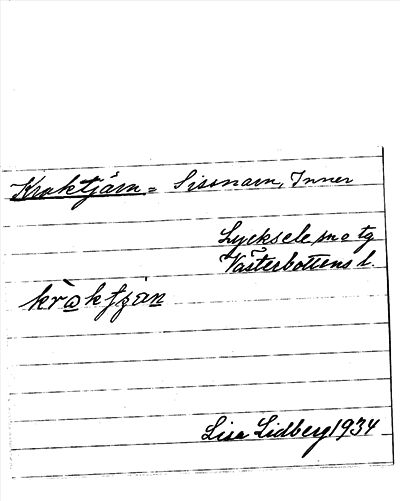 Kroktjärn = Sissnam, Inner
Lycksele sn o tg
Västerbottens l.
kròkʃɟan
Lisa Lidberg 1934